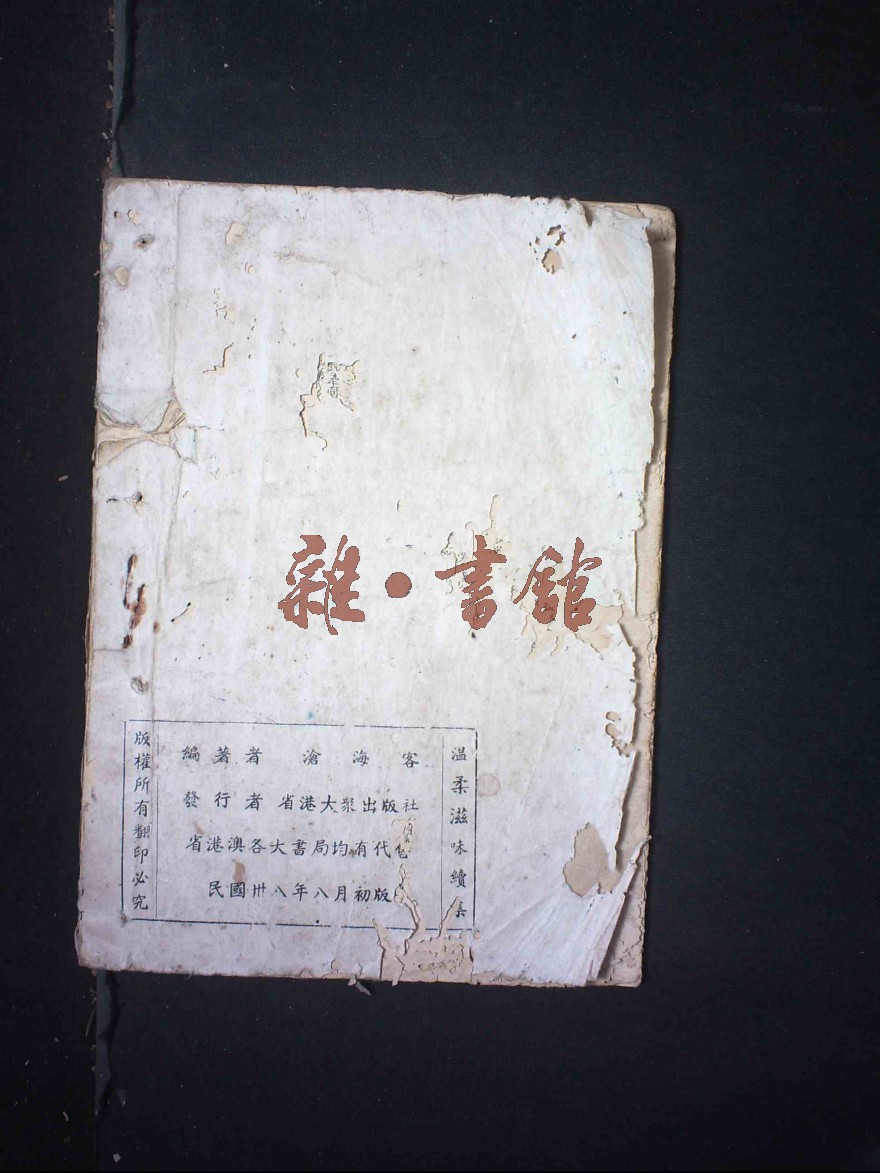 雜·書館
温柔滋味續集
編著者 滄海客
發行者 省港大衆出版社
省港澳各大書局均有代售
民國卅八年八月初版
版權所有翻印必究